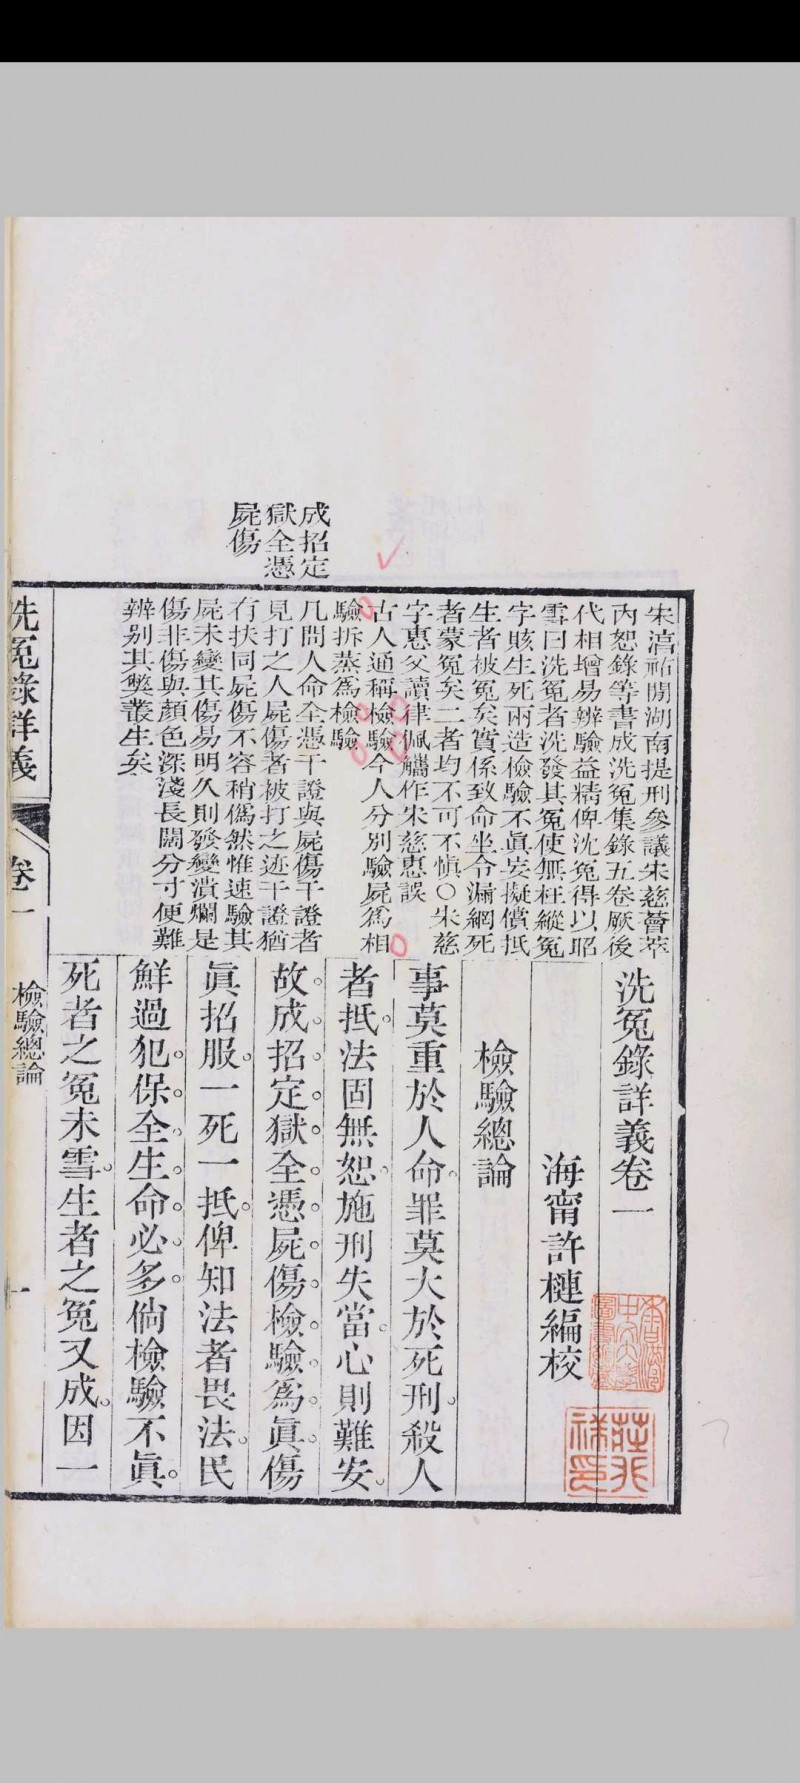 成招定
獄全憑
屍傷
宋淳祐閒湖南提刑參議宋慈薈萃
內恕錄等書成洗冤集錄五卷厥後
代相增易辨驗益精俾沈冤得以昭
雪曰洗冤者洗發其冤使無枉縱冤
字賅生死兩造檢驗不眞妄擬償抵
生者被冤矣實係致命坐令漏網死
者蒙冤矣二者均不可不愼○宋慈
字惠父讀律佩觿作朱慈惠誤
古人通稱檢驗今人分別驗屍爲相
驗拆蒸爲檢驗
凡問人命全憑干證與屍傷干證者
見打之人屍傷者被打之迹干證猶
有扶同屍傷不容稍僞然惟速驗其
屍未變其傷易明久則發變潰爛是
傷非傷與顏色深淺長闊分寸便難
辨別其獘叢生矣
洗冤錄詳義卷一
海甯許槤編校
檢驗總論
事莫重於人命罪莫大於死刑殺人
者抵法固無恕施刑失當心則難安
故成招定獄全憑屍傷檢驗爲眞傷
眞招服一死一抵俾知法者畏法民
鮮過犯保全生命必多倘檢驗不眞
死者之冤未雪生者之冤又成因一
洗冤錄詳義
卷一
檢驗總論
一